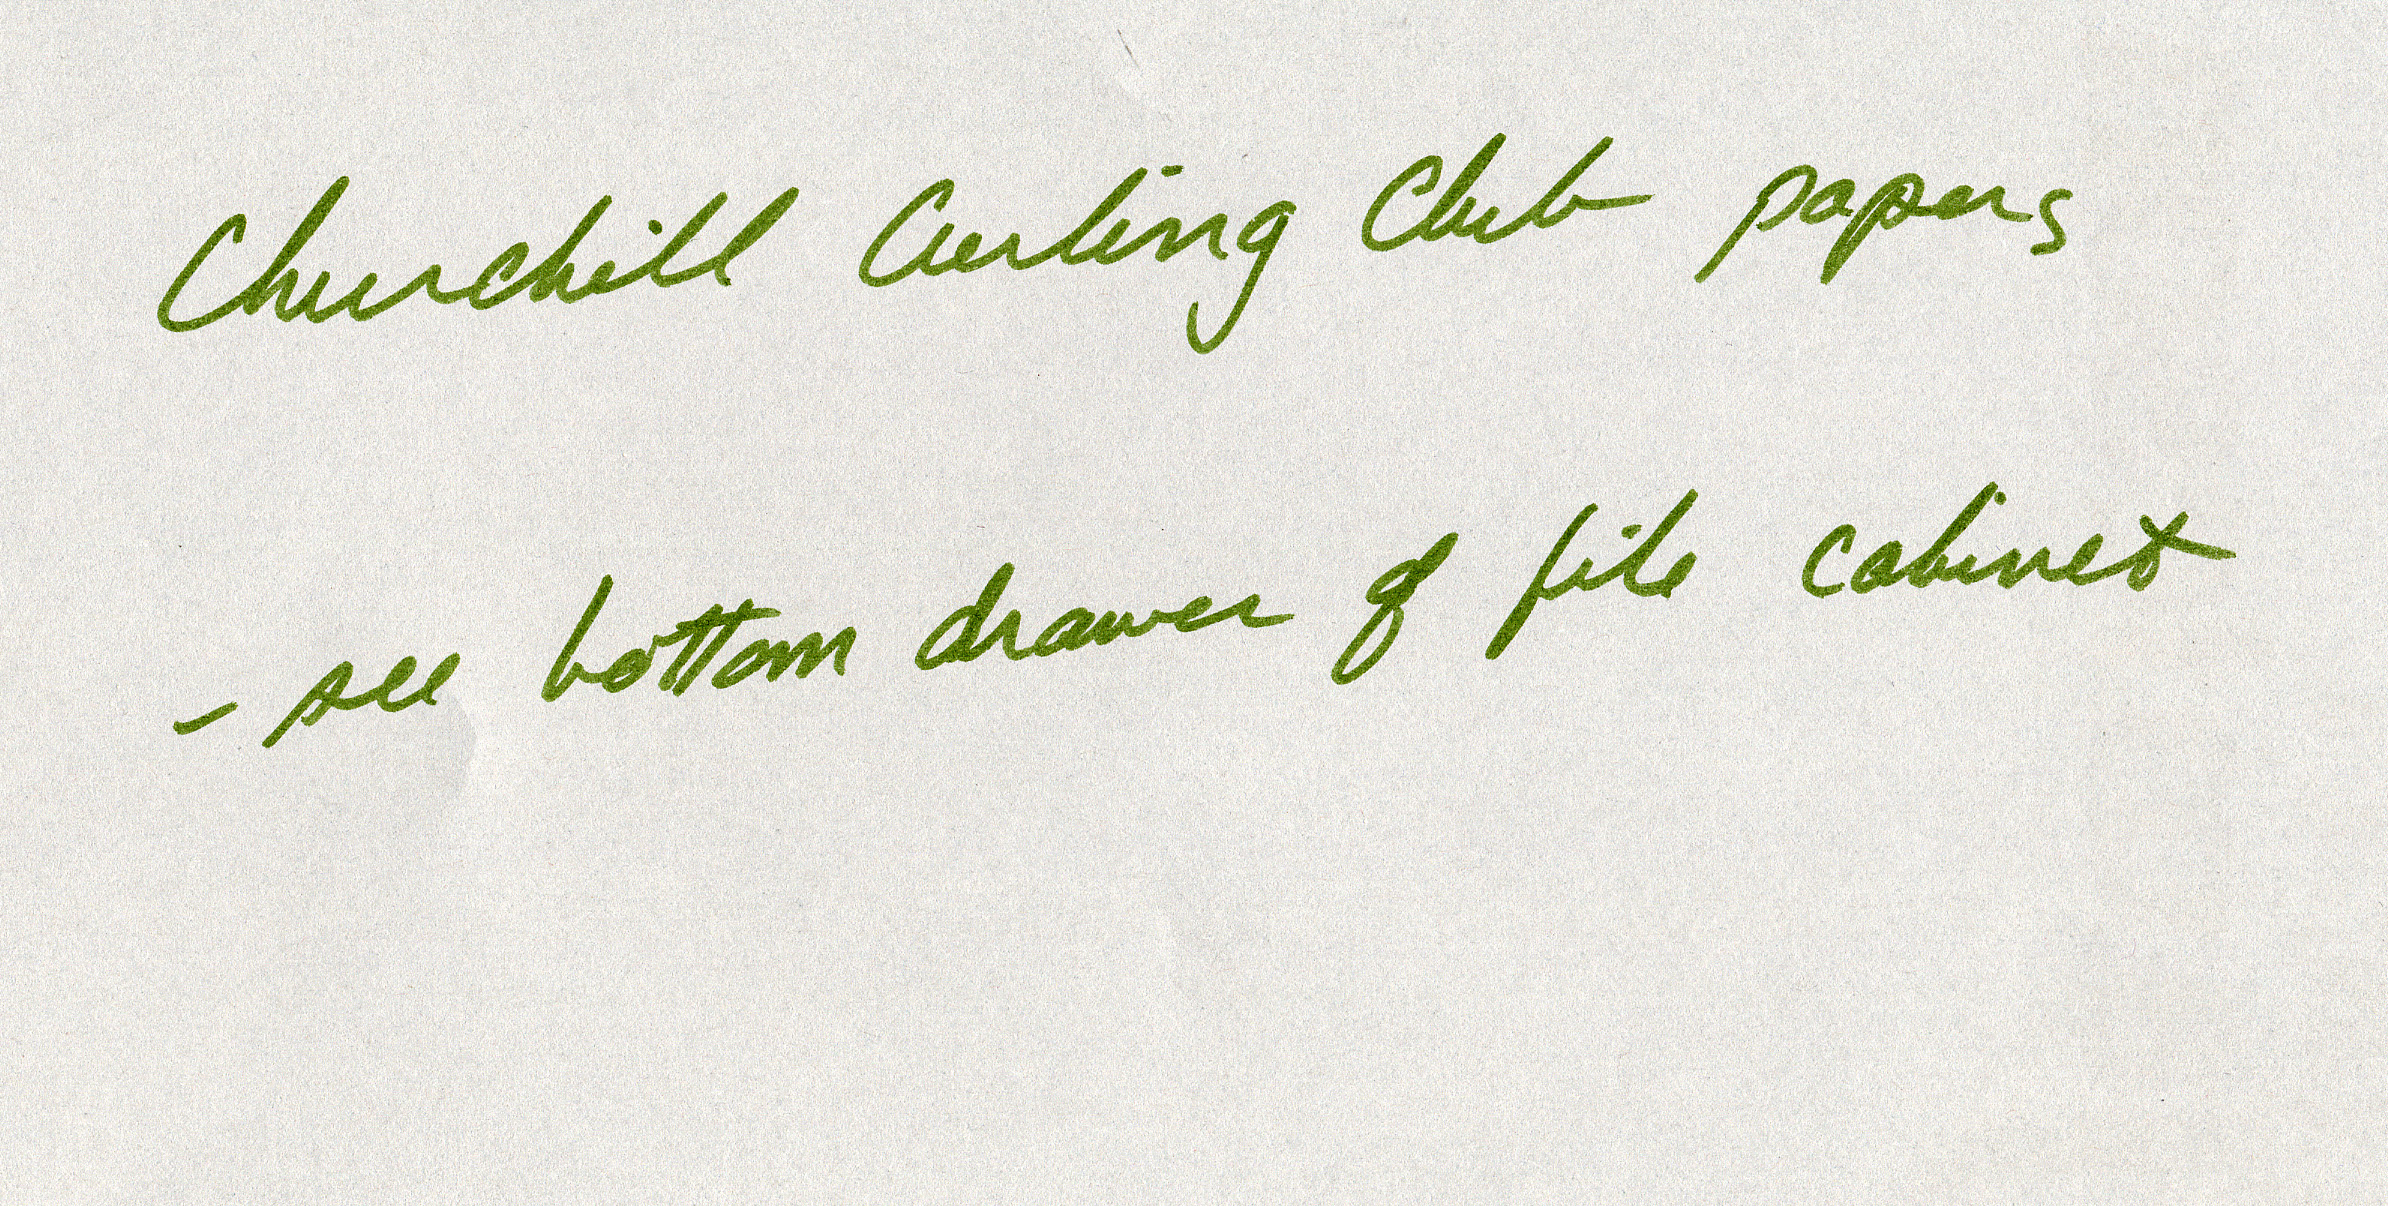 Churchill Curling Club papers
- see bottom drawer of file cabinet